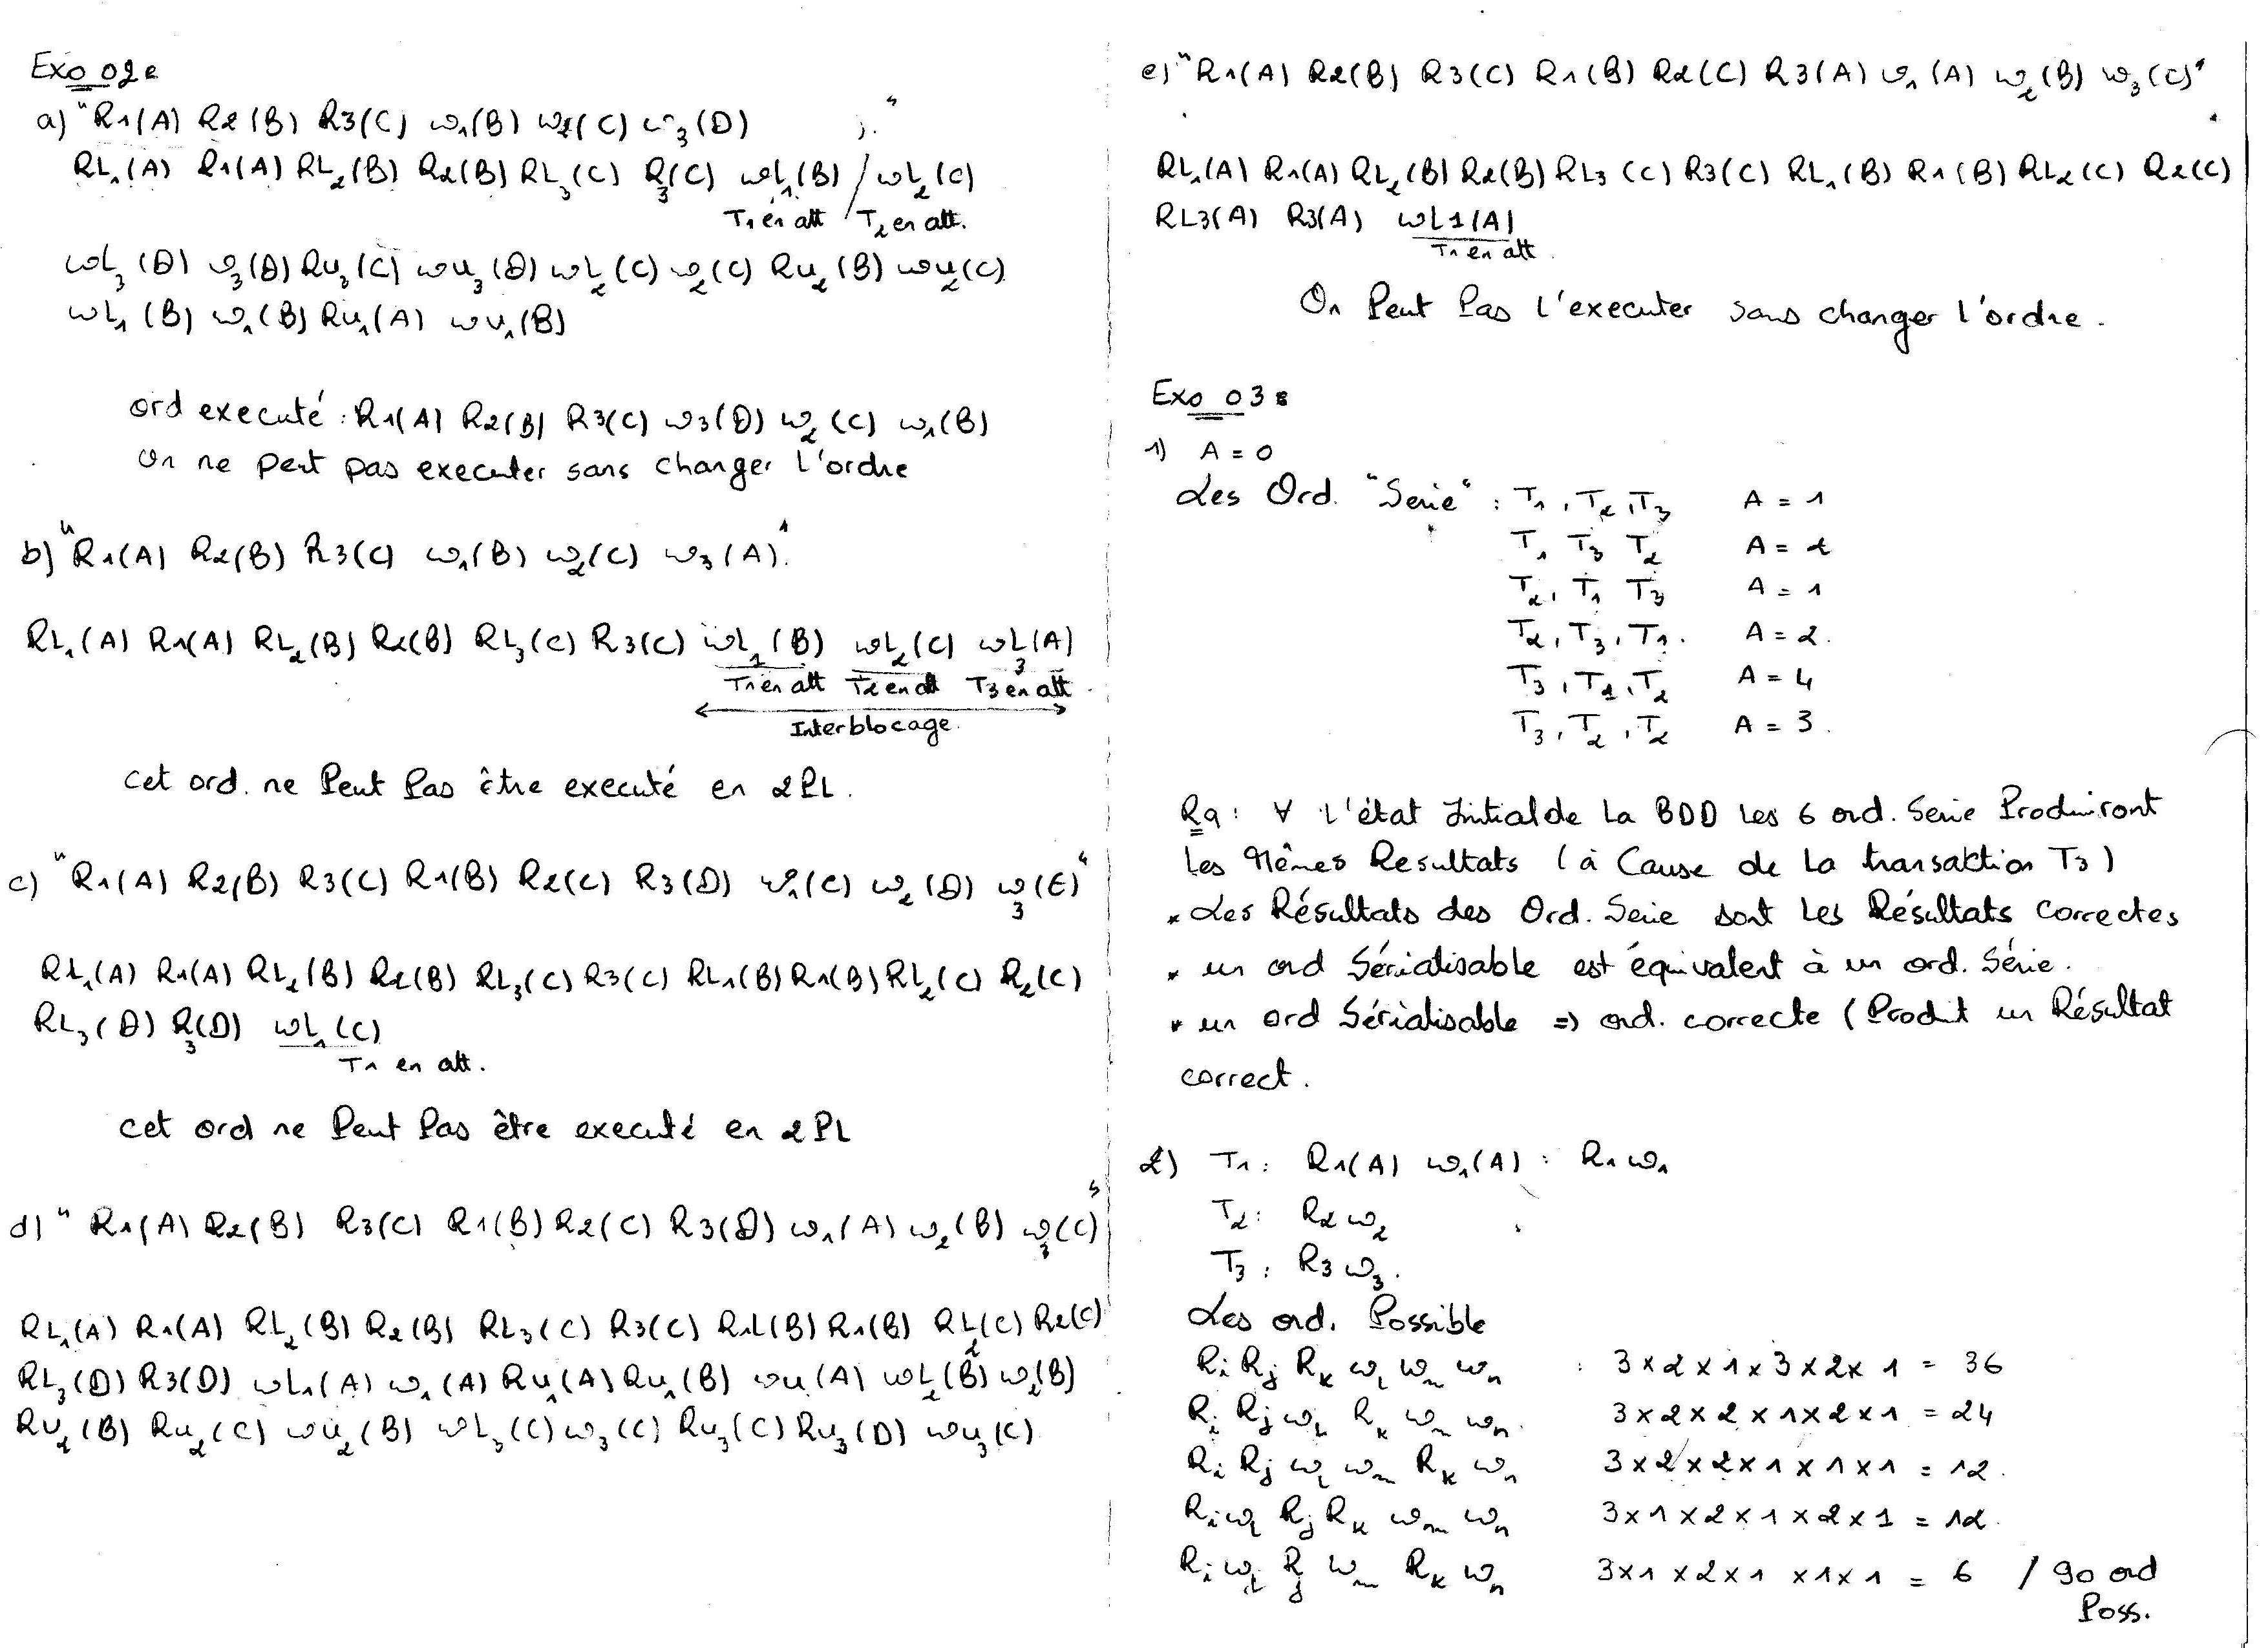 Exo 02 :
a) "R1(A) R2(B) R3(C) w1(B) w2(C) w3(D) ;."
RL1(A) R1(A) RL2(B) R2(B) RL3(C) R3(C) wL1(B) / wL2(C)
T1 en att / T2 en att.
wL3(D) w3(D) Ru3(C) wu3(D) wL2(C) w2(C) Ru2(B) wu2(C)
wL1(B) w1(B) Ru1(A) wu1(B)
ord executé : R1(A) R2(B) R3(C) w3(D) w2(C) w1(B)
On ne peut pas executer sans changer l'ordre
b) "R1(A) R2(B) R3(C) w1(B) w2(C) w3(A)."
RL1(A) R1(A) RL2(B) R2(B) RL3(C) R3(C) wL1(B) wL2(C) wL3(A)
T1 en att T2 en att T3 en att.
Interblocage.
cet ord. ne Peut Pas être executé en 2PL.
c) "R1(A) R2(B) R3(C) R1(B) R2(C) R3(D) w1(C) w2(D) w3(E)"
RL1(A) R1(A) RL2(B) R2(B) RL3(C) R3(C) RL1(B) R1(B) RL2(C) R2(C)
RL3(D) R3(D) wL1(C)
T1 en att.
cet ord ne Peut Pas être executé en 2PL
d) "R1(A) R2(B) R3(C) R1(B) R2(C) R3(D) w1(A) w2(B) w3(C)"
RL1(A) R1(A) RL2(B) R2(B) RL3(C) R3(C) R1L(B) R1(B) RL2(C) R2(C)
RL3(D) R3(D) wL1(A) w1(A) Ru1(A) Ru1(B) wu(A) wL2(B) w2(B)
Ru2(B) Ru2(C) wu2(B) wL3(C) w3(C) Ru3(C) Ru3(D) wu3(C)
e) "R1(A) R2(B) R3(C) R1(B) R2(C) R3(A) w1(A) w2(B) w3(C)"
RL1(A) R1(A) RL2(B) R2(B) RL3(C) R3(C) RL1(B) R1(B) RL2(C) R2(C)
RL3(A) R3(A) wL1(A)
T1 en att.
On Peut Pas l'executer sans changer l'ordre.
Exo 03 :
1) A = 0
Les Ord. "Serie" : T1, T2, T3 A = 1
T1 T3 T2 A = 2
T2, T1 T3 A = 1
T2, T3, T1. A = 2.
T3, T1, T2 A = 4
T3, T2, T2 A = 3.
Rq : ∀ l'état Initial de la BDD les 6 ord. Serie Produiront
les Mêmes Resultats (à Cause de la transaktion T3)
* Les Résultats des Ord. Serie sont les Résultats correctes
* un ord Sérialisable est équivalent à un ord. Série.
* un ord Sérialisable => ord. correcte (Produit un Résultat
correct.
2) T1 : R1(A) w1(A) : R1 w1
T2 : R2 w2
T3 : R3 w3.
Les ord. Possible
Ri Rj Rk wl wm wn : 3 x 2 x 1 x 3 x 2 x 1 = 36
Ri Rj wl Rk wm wn. 3 x 2 x 2 x 1 x 2 x 1 = 24
Ri Rj wl wm Rk wn 3 x 2 x 2 x 1 x 1 x 1 = 12.
Ri wl Rj Rk wm wn 3 x 1 x 2 x 1 x 2 x 1 = 12.
Ri wl Rj wm Rk wn 3 x 1 x 2 x 1 x 1 x 1 = 6 / 90 ord
Poss.